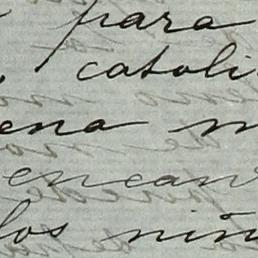 para
catoli
ena m
encan
los niñ